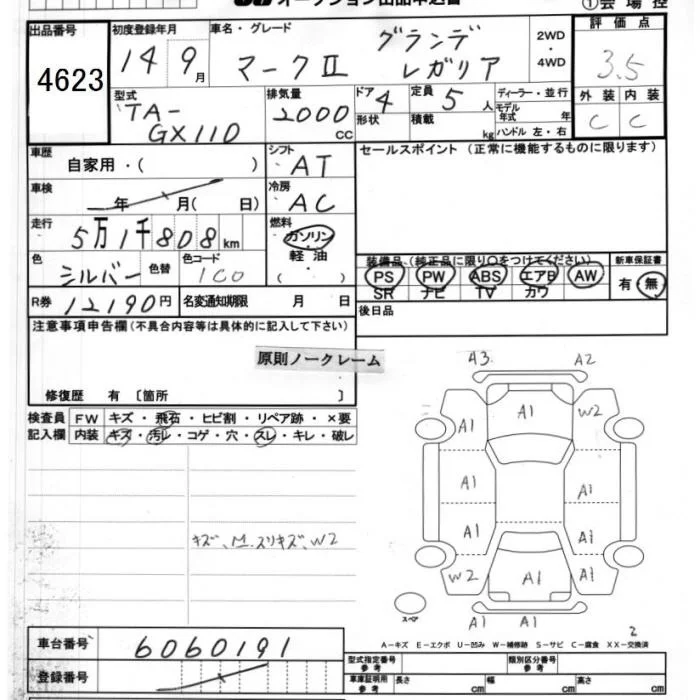 オークション出品申込書
①会場控
出品番号
4623
初度登録年月
14 9月
車名・グレード
マークⅡ グランデ レガリア
2WD・4WD
評価点
3.5
外装 内装
C C
型式
TA-GX110
排気量
2000cc
ドア形状
4
定員
5人
積載
kg
ディーラー・並行
モデル年式 年
ハンドル 左・右
車歴
自家用・( )
シフト
AT
車検
年 月( 日)
冷房
AC
走行
5万1千808km
燃料
ガソリン
軽油
( )
色
シルバー
色替
色コード
1C0
R券
12190円
名変通知期限 月 日
セールスポイント (正常に機能するものに限ります)
装備品 (純正品に限り○をつけてください)
PS PW ABS エアB AW
SR ナビ TV カワ
新車保証書
有・無
後日品
注意事項申告欄(不具合内容等は具体的に記入して下さい)
原則ノークレーム
修復歴 有 〔箇所 〕
検査員記入欄
FW キズ・飛石・ヒビ割・リペア跡・×要
内装 キズ・汚レ・コゲ・穴・スレ・キレ・破レ
キズ、M.スリキズ、W2
A3 A2
A1 A1 W2
A1 A1
A1 A1
W2 A1 A1
A1 A1
スペア
2
A-キズ E-エクボ U-凹み W-補修跡 S-サビ C-腐食 XX-交換済
車台番号
6060191
登録番号
型式指定番号 参考
類別区分番号 参考
車庫証明用 参考
長さ cm 幅 cm 高さ cm